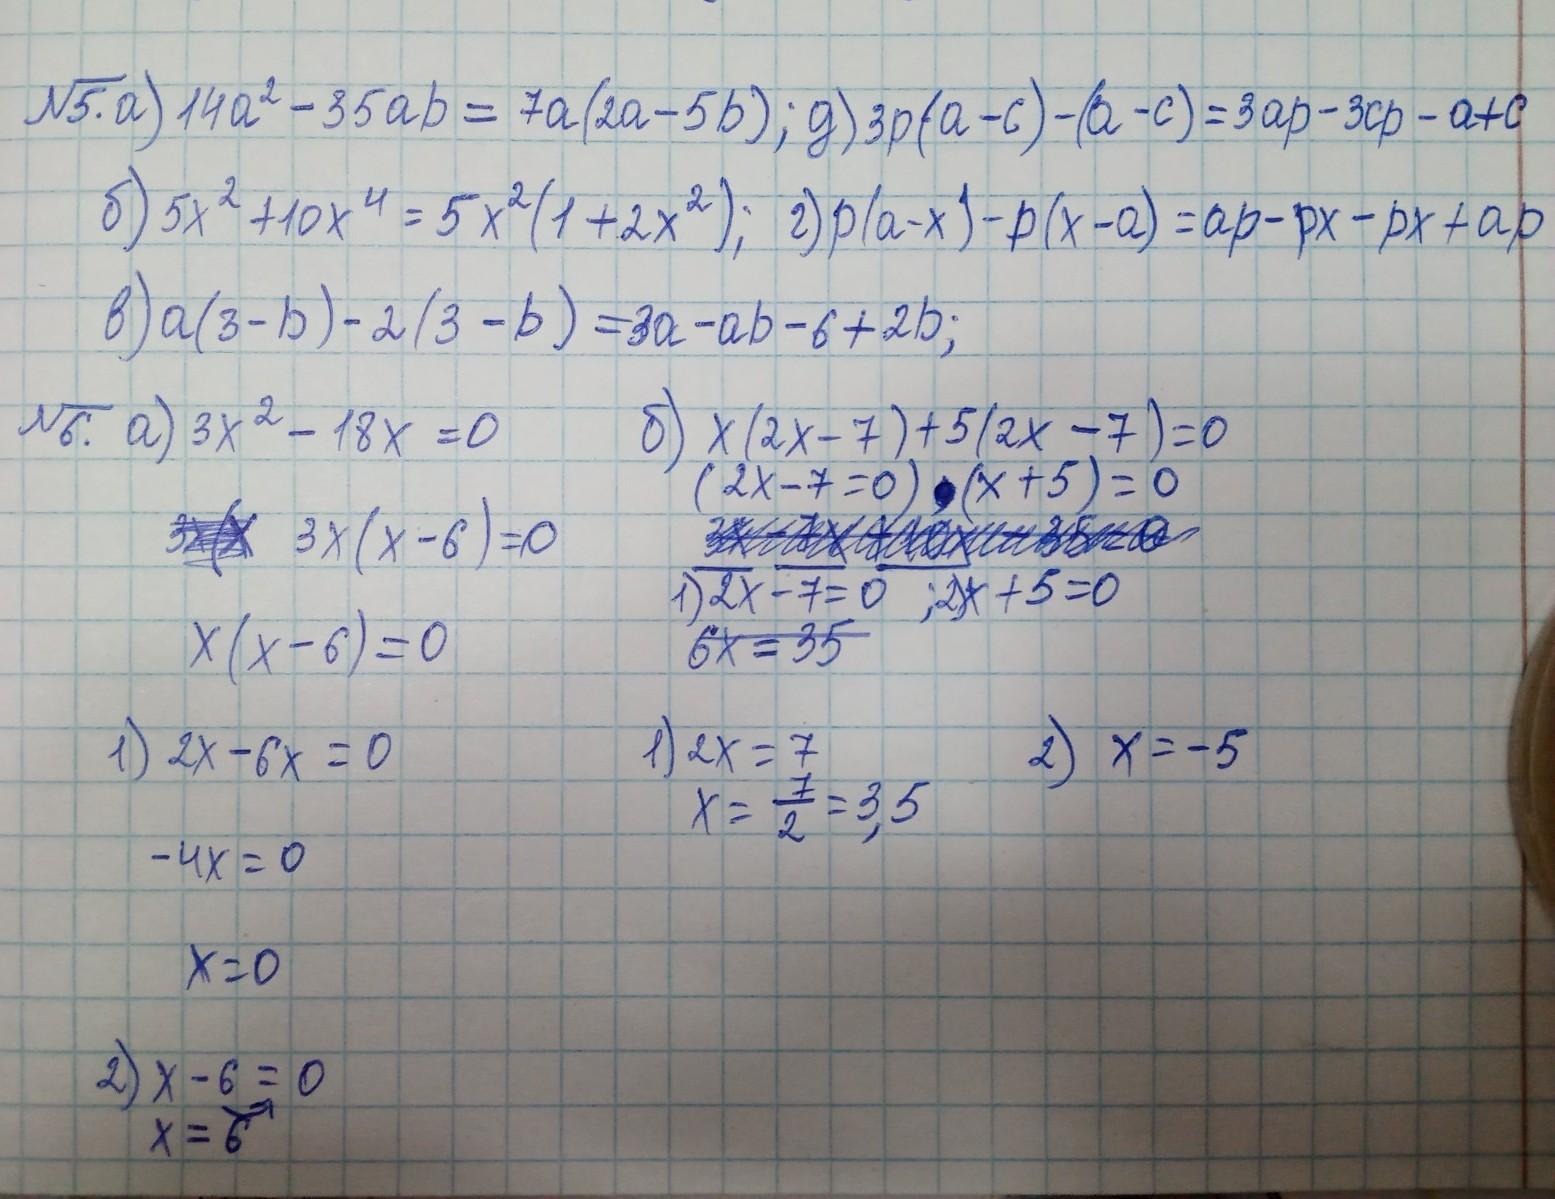 №5. а) 14a² − 35ab = 7a(2a − 5b); д) 3p(a − c) − (a − c) = 3ap − 3cp − a + c
б) 5x² + 10x⁴ = 5x²(1 + 2x²); г) p(a − x) − p(x − a) = ap − px − px + ap
в) a(3 − b) − 2(3 − b) = 3a − ab − 6 + 2b;
№6. а) 3x² − 18x = 0
3x(x − 6) = 0
x(x − 6) = 0
1) 2x − 6x = 0
−4x = 0
x = 0
2) x − 6 = 0
x = 6
б) x(2x − 7) + 5(2x − 7) = 0
(2x − 7 = 0) • (x + 5) = 0
1) 2x − 7 = 0 ; 2) x + 5 = 0
6x = 35
1) 2x = 7
x = 7/2 = 3,5
2) x = −5